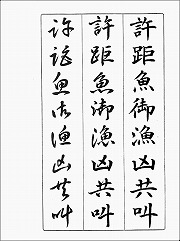 許距魚御漁凶共叫
許距魚御漁凶共叫
許距魚御漁凶共叫